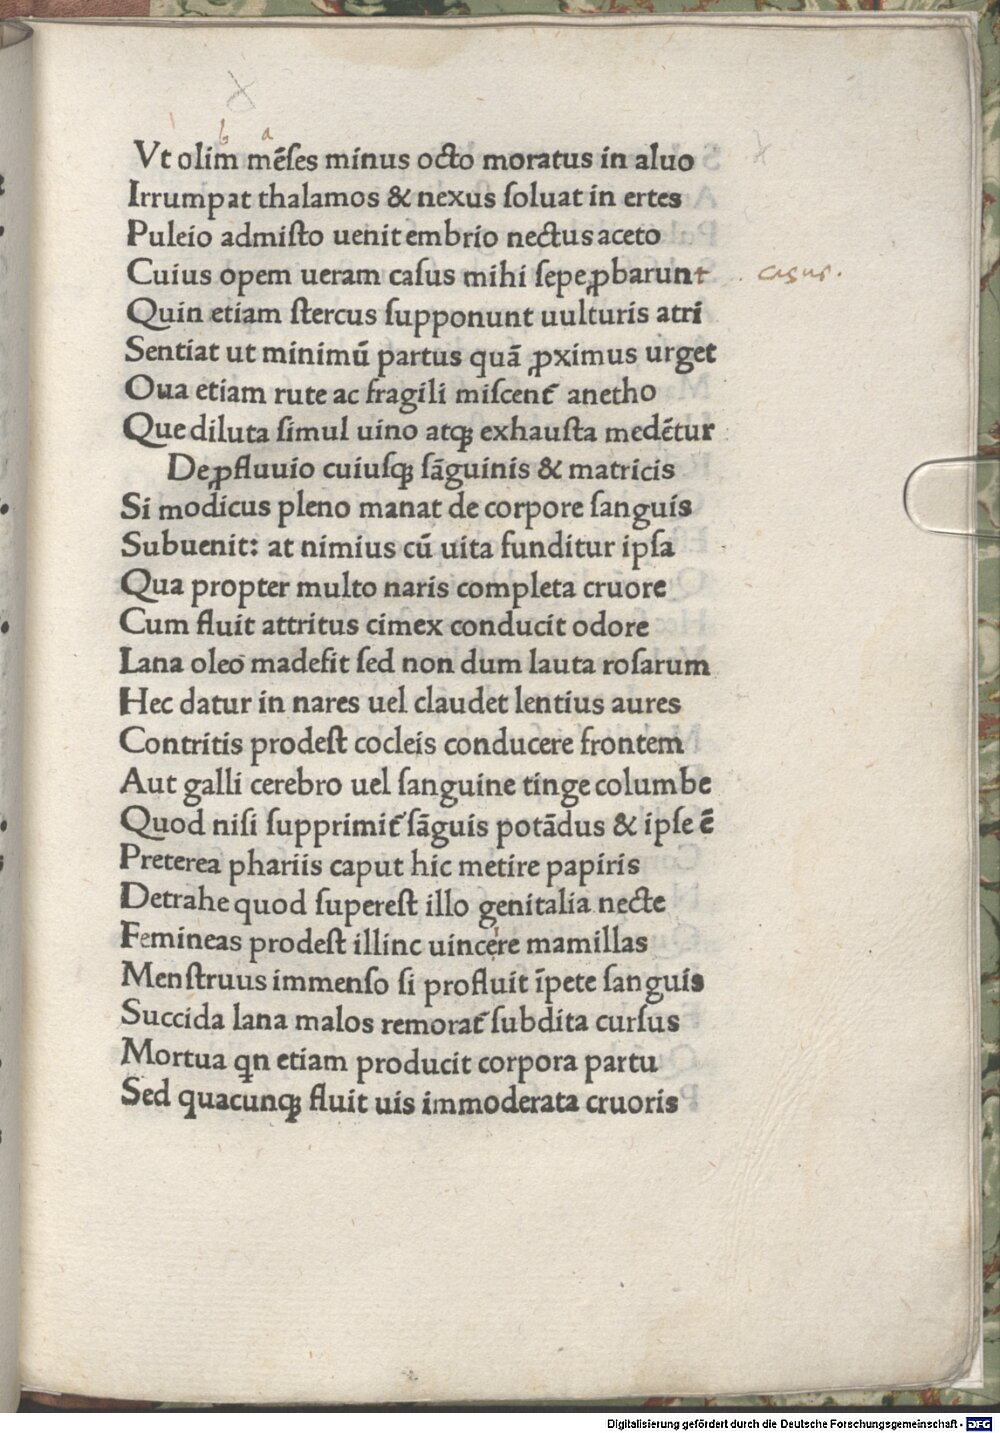 b a
Vt olim mēſes minus octo moratus in aluo
Irrumpat thalamos & nexus ſoluat in ertes
Puleio admiſto uenit embrio nectus aceto
Cuius opem ueram caſus mihi ſepe ꝓbarunt casus.
Quin etiam ſtercus ſupponunt uulturis atri
Sentiat ut minimū partus quā ꝓximus urget
Oua etiam rute ac fragili miſcent᷑ anetho
Que diluta ſimul uino atqꝫ exhauſta medētur
De ꝓfluuio cuiuſqꝫ ſāguinis & matricis
Si modicus pleno manat de corpore ſanguis
Subuenit: at nimius cū uita funditur ipſa
Qua propter multo naris completa cruore
Cum fluit attritus cimex conducit odore
Lana oleo madefit ſed non dum lauta roſarum
Hec datur in nares uel claudet lentius aures
Contritis prodeſt cocleis conducere frontem
Aut galli cerebro uel ſanguine tinge columbe
Quod niſi ſupprimit᷑ ſāguis potādus & ipſe ē
Preterea phariis caput hic metire papiris
Detrahe quod ſupereſt illo genitalia necte
Femineas prodeſt illinc uincere mamillas
Menſtruus immenſo ſi profluit īpete ſanguis
Succida lana malos remorat᷑ ſubdita curſus
Mortua qn etiam producit corpora partu
Sed quacunqꝫ fluit uis immoderata cruoris
Digitalisierung gefördert durch die Deutsche Forschungsgemeinschaft - DFG